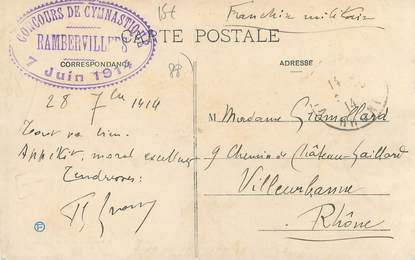 CONCOURS DE GYMNASTIQUE
RAMBERVILLERS
7 Juin 1914
15t
Franchise militaire
CARTE POSTALE
CORRESPONDANCE
88
ADRESSE
28 7bre 1914
Tout va bien.
Appétit, moral excellent
Tendresses.
M Madame
9 Chemin de Château-Gaillard
Villeurbanne
Rhône
F